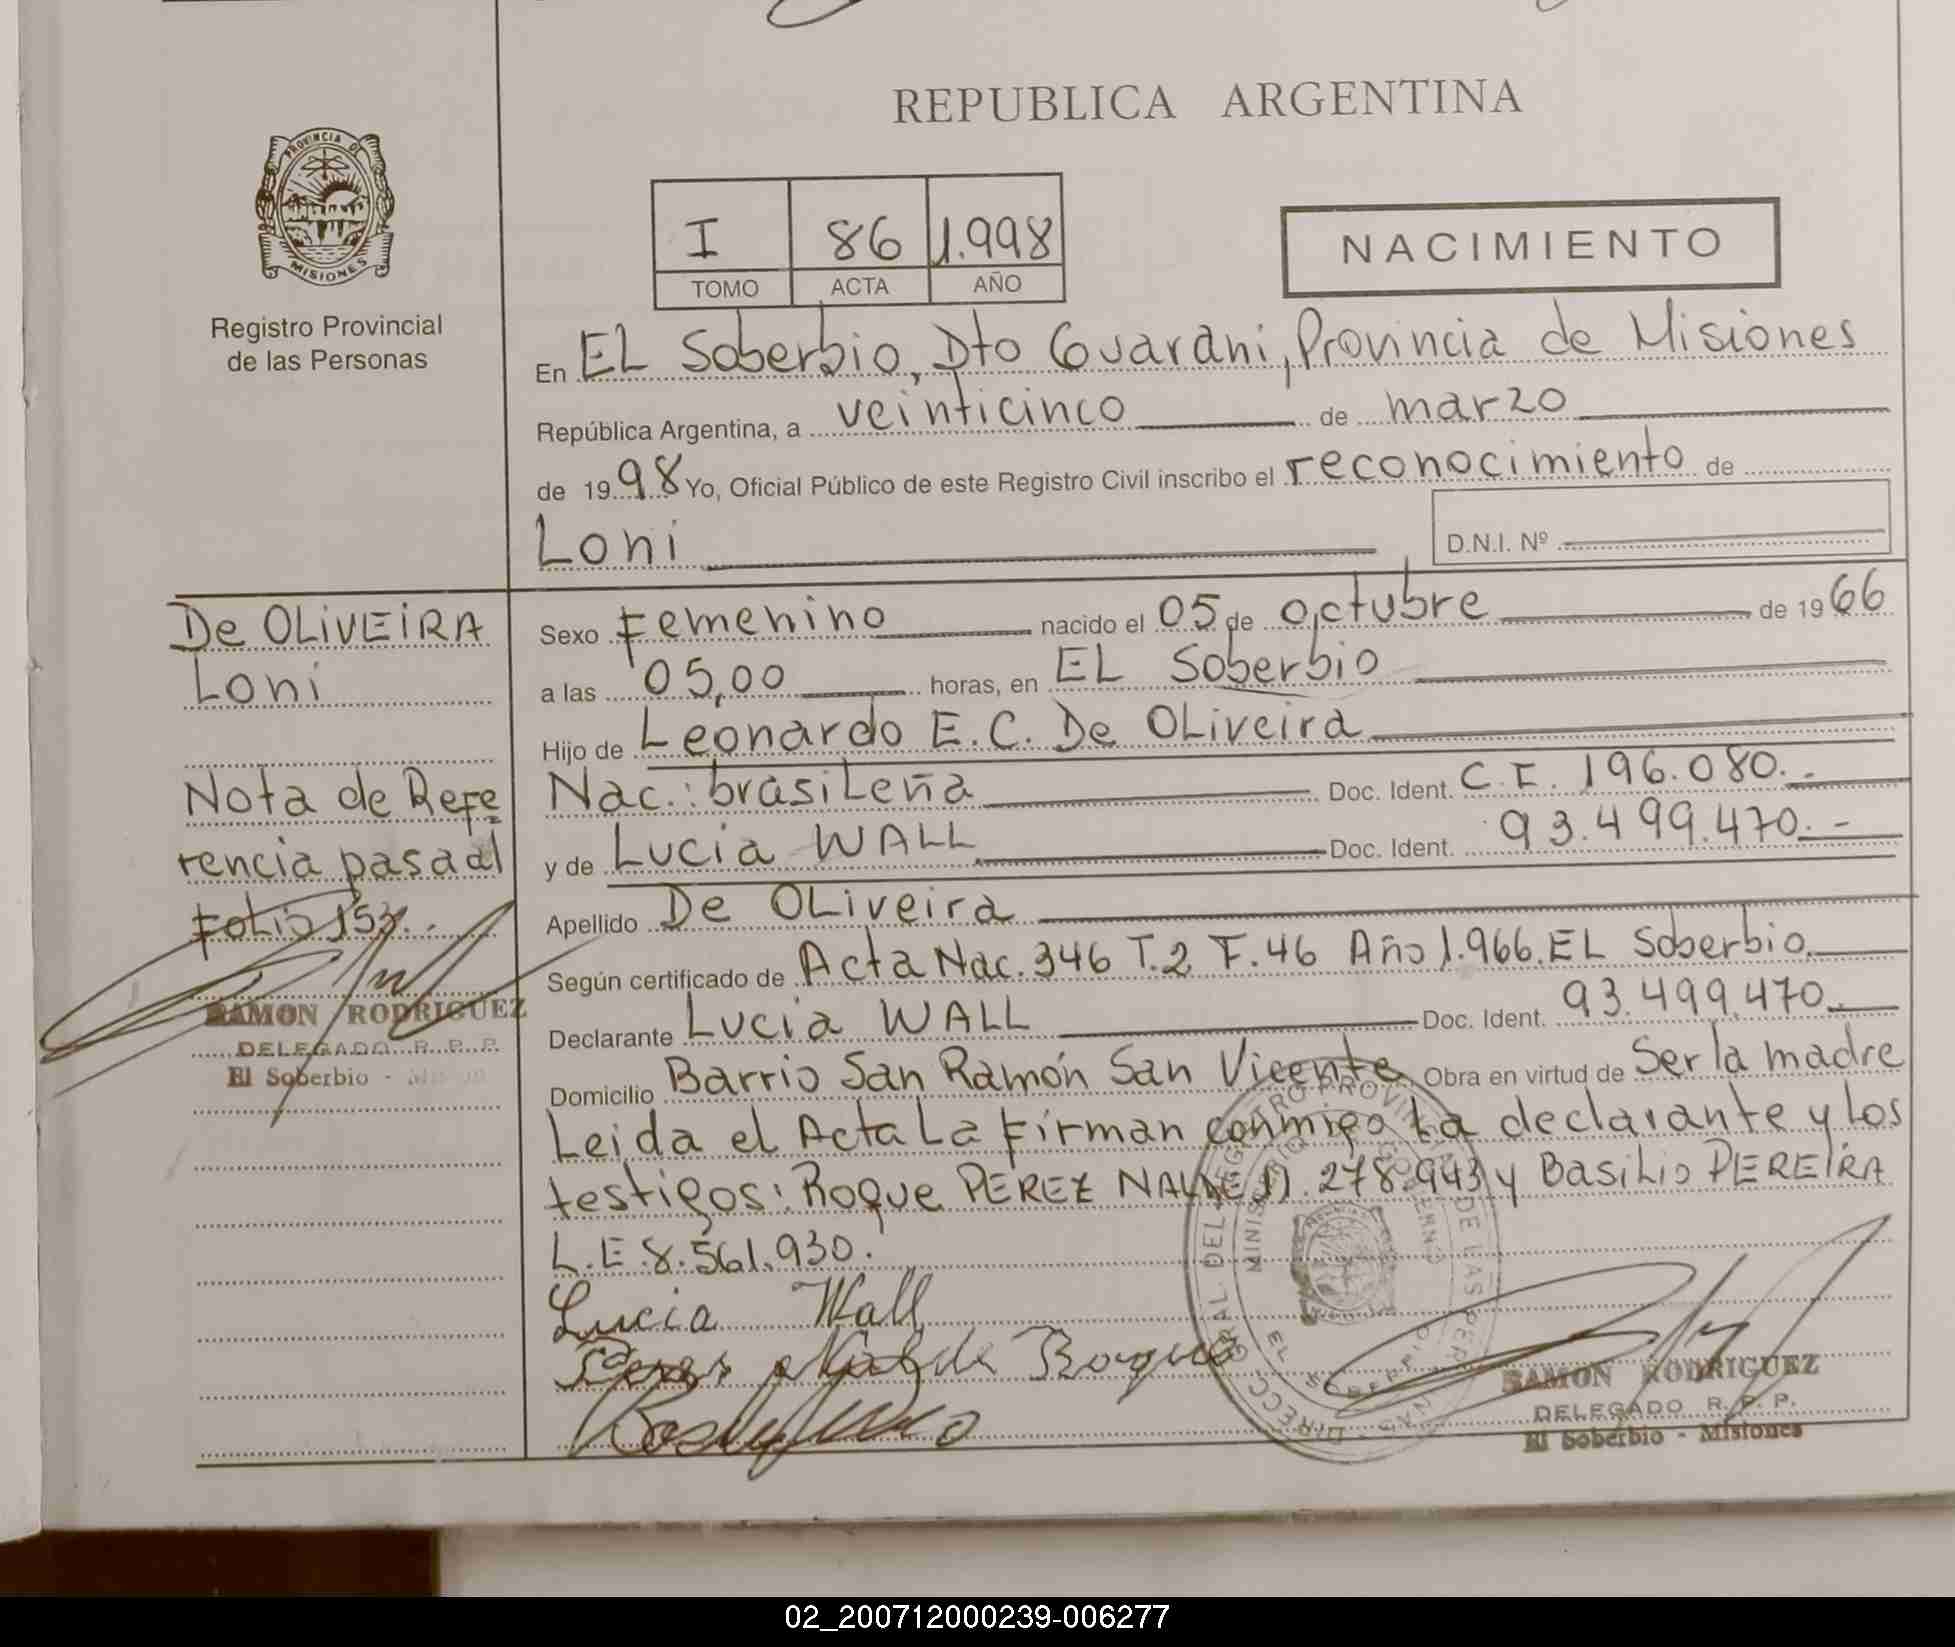 REPUBLICA ARGENTINA
PROVINCIA DE
MISIONES
Registro Provincial
de las Personas
I 86 1.998
TOMO ACTA AÑO
NACIMIENTO
En EL Soberbio, Dto Guarani, Provincia de Misiones
República Argentina, a veinticinco de marzo
de 1998 Yo, Oficial Público de este Registro Civil inscribo el reconocimiento de
Loni D.N.I. Nº
De OLiVEiRA
Loni
Nota de Refe
rencia pasa al
Folio 153.
RAMON RODRIGUEZ
DELEGADO R. P. P.
El Soberbio -
Sexo Femenino nacido el 05 de octubre de 1966
a las 05,00 horas, en EL Soberbio
Hijo de Leonardo E.C. De OLiveira
Nac.: brasiLeña Doc. Ident. C.I. 196.080.-
y de Lucia WALL Doc. Ident. 93.499.470.-
Apellido De OLiveira
Según certificado de Acta Nac. 346 T.2 F.46 Año 1.966. EL Soberbio.
Declarante Lucia WALL Doc. Ident. 93.499.470.-
Domicilio Barrio San Ramón San Vicente Obra en virtud de Ser la madre
Leida el Acta La Firman conmigo La declarante y Los
testigos: Roque PEREZ D. 278.943 y BasiLio PEREIRA
L.E 8.561.930.
Lucia Wall
Roque
RAMON RODRIGUEZ
DELEGADO R. P. P.
El Soberbio - Misiones
02_200712000239-006277